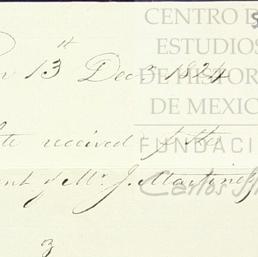 CENTRO D
ESTUDIOS
DE HISTOR
DE MEXIC
FUNDACI
Carlos Sl
13th Decr 1824
received of the
of Mr. J. Martinez